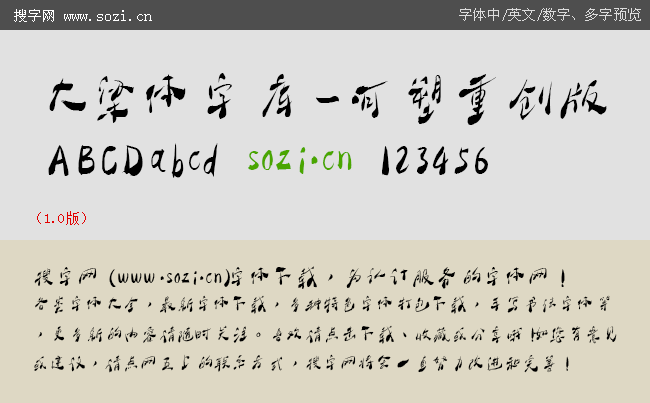 搜字网 www.sozi.cn
字体中/英文/数字、多字预览
大梁体字库一何塑重创版
ABCDabcd sozi.cn 123456
(1.0版)
搜字网(www.sozi.cn)字体下载，为认订服务的字体网！
各类字体大全，最新字体下载，各种特色字体打包下载，手写书法字体等
，更多新的内容请随时关注。喜欢请点击下载、收藏或分享哦!如您有意见
或建议，请点网页上的联系方式，搜字网将会一直努力改进和完善！